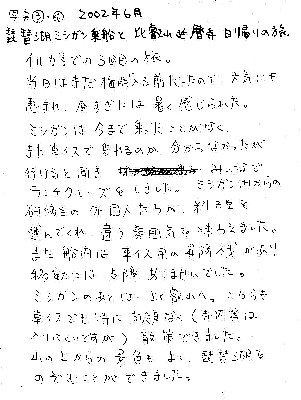 2002年6月
琵琶湖ミシガン乗船と比叡山延暦寺日帰りの旅
での3回目の旅。
当日はまだ梅雨入る前だったので、天気にも
恵まれ、過ぎには暑く感じられた。
ミシガンは今まで乗ったことがなく、
また車イスで乗れるのか、分からなかったが
行けると聞き みんなで
ランチクルーズをしました。ミシガン州からの
の外国人たちが、利き
選んでくれ、違う雰囲気を味わえました。
また船内は車イス用の昇降機があり
移動には支障ありませんでした。
ミシガンのあとは、比叡山へ。こちらも
車イスでも特に問題なく(
入りにくいですが)散策できました。
山の上からの景色もよく、琵琶湖を
のぞむことができました。